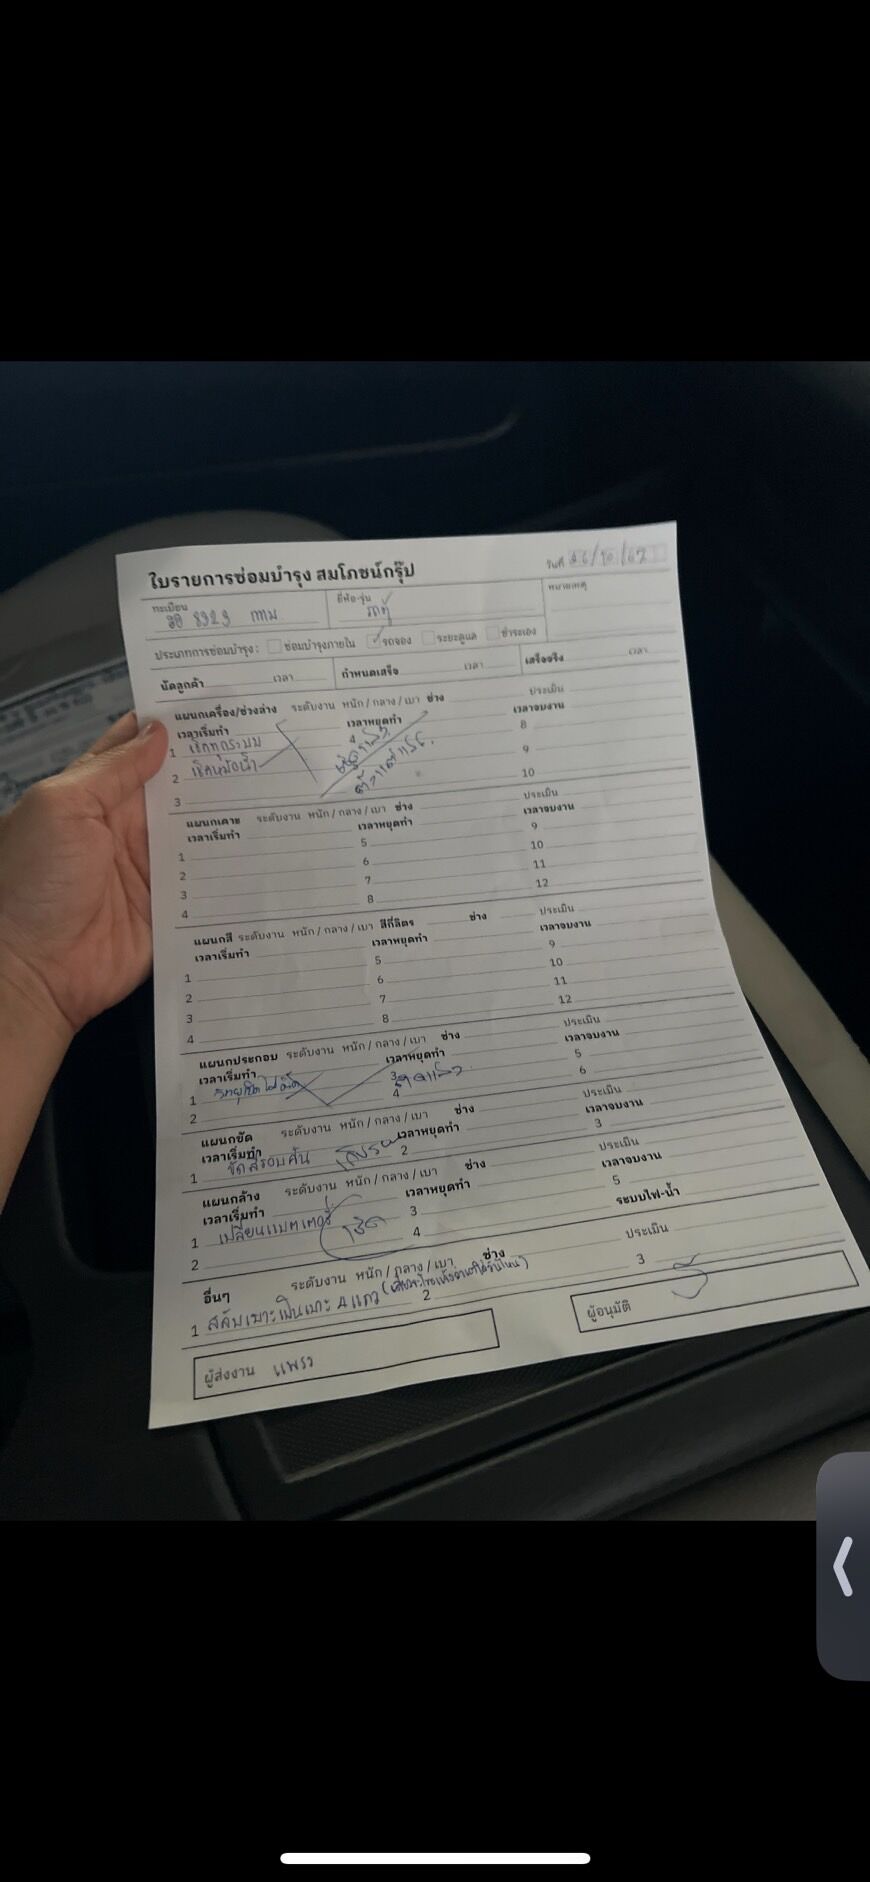 ใบรายการซ่อมบำรุง สมโภชน์กรุ๊ป
วันที่ 26/10/67
ทะเบียน ยี่ห้อ-รุ่น หมายเหตุ
8323 กทม รถตู้
ประเภทการซ่อมบำรุง: ซ่อมบำรุงภายใน รถจอง ระยะดูแล ชำระเอง
นัดลูกค้า เวลา กำหนดเสร็จ เวลา เสร็จจริง เวลา
แผนกเครื่อง/ช่วงล่าง ระดับงาน หนัก / กลาง / เบา ช่าง ประเมิน
เวลาเริ่มทำ เวลาหยุดทำ เวลาจบงาน
1 เช็คทุกระบบ 4 8
2 เช็คหม้อน้ำ 9
3 10
แผนกเคาะ ระดับงาน หนัก / กลาง / เบา ช่าง ประเมิน
เวลาเริ่มทำ เวลาหยุดทำ เวลาจบงาน
1 5 9
2 6 10
3 7 11
4 8 12
แผนกสี ระดับงาน หนัก / กลาง / เบา สีกี่ลิตร ช่าง ประเมิน
เวลาเริ่มทำ เวลาหยุดทำ เวลาจบงาน
1 5 9
2 6 10
3 7 11
4 8 12
แผนกประกอบ ระดับงาน หนัก / กลาง / เบา ช่าง ประเมิน
เวลาเริ่มทำ เวลาหยุดทำ เวลาจบงาน
1 3 5
2 4 6
แผนกขัด ระดับงาน หนัก / กลาง / เบา ช่าง ประเมิน
เวลาเริ่มทำ เวลาหยุดทำ เวลาจบงาน
1 ขัดสีรอบคัน 2 3
แผนกล้าง ระดับงาน หนัก / กลาง / เบา ช่าง ประเมิน
เวลาเริ่มทำ เวลาหยุดทำ เวลาจบงาน
1 เปลี่ยนแบตเตอรี่ เช็ค 3 5
2 4 ระบบไฟ-น้ำ
อื่นๆ ระดับงาน หนัก / กลาง / เบา ช่าง ประเมิน
1 สลับเบาะเป็นเบาะ 4 แถว 2 3
ผู้ส่งงาน แพรว ผู้อนุมัติ